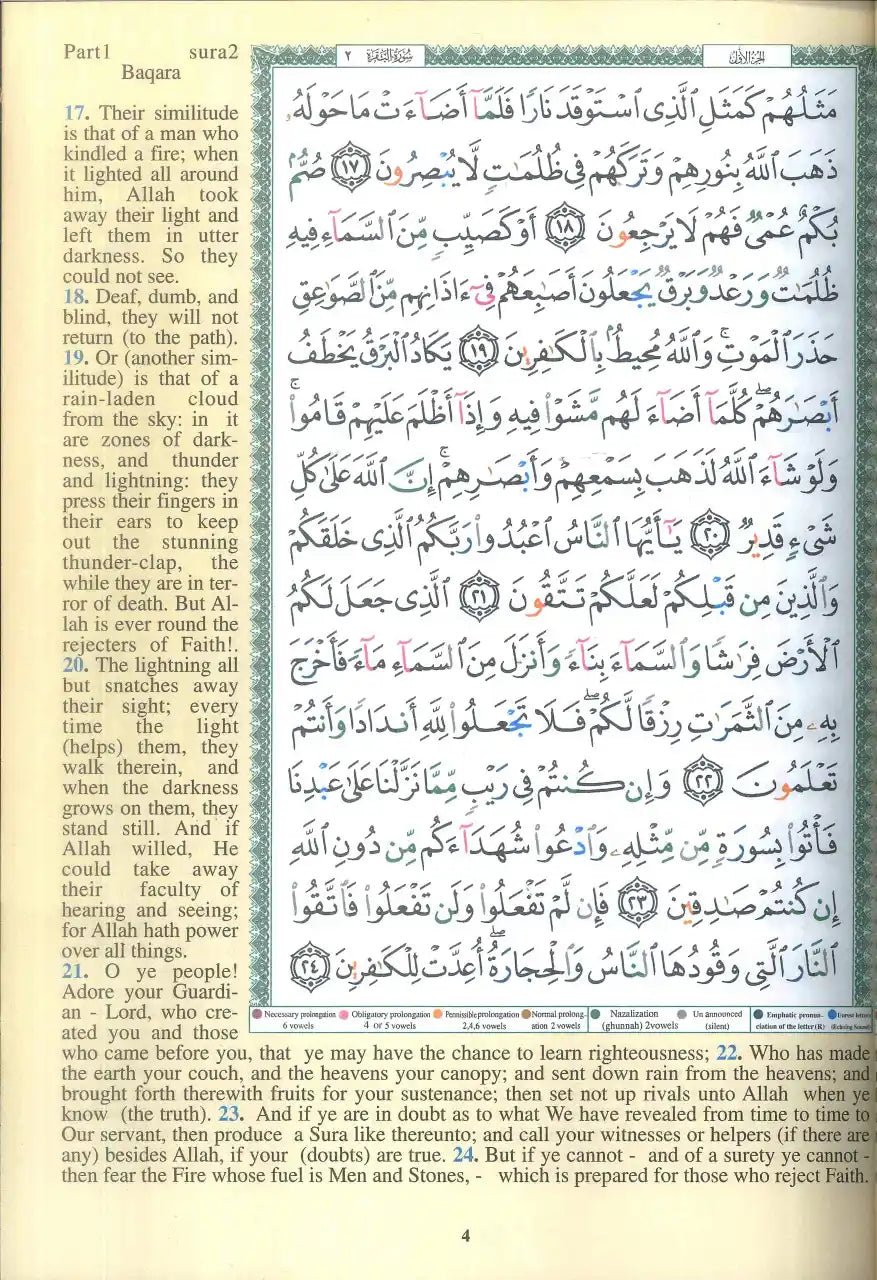 Part1 sura2
Baqara
سُورَةُ البَقَرَة ٢
الجُزءُ الأوّل
17. Their similitude
is that of a man who
kindled a fire; when
it lighted all around
him, Allah took
away their light and
left them in utter
darkness. So they
could not see.
18. Deaf, dumb, and
blind, they will not
return (to the path).
19. Or (another sim-
ilitude) is that of a
rain-laden cloud
from the sky: in it
are zones of dark-
ness, and thunder
and lightning: they
press their fingers in
their ears to keep
out the stunning
thunder-clap, the
while they are in ter-
ror of death. But Al-
lah is ever round the
rejecters of Faith!.
20. The lightning all
but snatches away
their sight; every
time the light
(helps) them, they
walk therein, and
when the darkness
grows on them, they
stand still. And if
Allah willed, He
could take away
their faculty of
hearing and seeing;
for Allah hath power
over all things.
21. O ye people!
Adore your Guardi-
an - Lord, who cre-
ated you and those
مَثَلُهُمْ كَمَثَلِ ٱلَّذِى ٱسْتَوْقَدَ نَارًا فَلَمَّآ أَضَآءَتْ مَا حَوْلَهُۥ
ذَهَبَ ٱللَّهُ بِنُورِهِمْ وَتَرَكَهُمْ فِى ظُلُمَٰتٍ لَّا يُبْصِرُونَ ١٧ صُمٌّۢ
بُكْمٌ عُمْىٌ فَهُمْ لَا يَرْجِعُونَ ١٨ أَوْ كَصَيِّبٍ مِّنَ ٱلسَّمَآءِ فِيهِ
ظُلُمَٰتٌ وَرَعْدٌ وَبَرْقٌ يَجْعَلُونَ أَصَٰبِعَهُمْ فِىٓ ءَاذَانِهِم مِّنَ ٱلصَّوَٰعِقِ
حَذَرَ ٱلْمَوْتِ ۚ وَٱللَّهُ مُحِيطٌۢ بِٱلْكَٰفِرِينَ ١٩ يَكَادُ ٱلْبَرْقُ يَخْطَفُ
أَبْصَٰرَهُمْ ۖ كُلَّمَآ أَضَآءَ لَهُم مَّشَوْا۟ فِيهِ وَإِذَآ أَظْلَمَ عَلَيْهِمْ قَامُوا۟ ۚ
وَلَوْ شَآءَ ٱللَّهُ لَذَهَبَ بِسَمْعِهِمْ وَأَبْصَٰرِهِمْ ۚ إِنَّ ٱللَّهَ عَلَىٰ كُلِّ
شَىْءٍ قَدِيرٌ ٢٠ يَٰٓأَيُّهَا ٱلنَّاسُ ٱعْبُدُوا۟ رَبَّكُمُ ٱلَّذِى خَلَقَكُمْ
وَٱلَّذِينَ مِن قَبْلِكُمْ لَعَلَّكُمْ تَتَّقُونَ ٢١ ٱلَّذِى جَعَلَ لَكُمُ
ٱلْأَرْضَ فِرَٰشًا وَٱلسَّمَآءَ بِنَآءً وَأَنزَلَ مِنَ ٱلسَّمَآءِ مَآءً فَأَخْرَجَ
بِهِۦ مِنَ ٱلثَّمَرَٰتِ رِزْقًا لَّكُمْ ۖ فَلَا تَجْعَلُوا۟ لِلَّهِ أَندَادًا وَأَنتُمْ
تَعْلَمُونَ ٢٢ وَإِن كُنتُمْ فِى رَيْبٍ مِّمَّا نَزَّلْنَا عَلَىٰ عَبْدِنَا
فَأْتُوا۟ بِسُورَةٍ مِّن مِّثْلِهِۦ وَٱدْعُوا۟ شُهَدَآءَكُم مِّن دُونِ ٱللَّهِ
إِن كُنتُمْ صَٰدِقِينَ ٢٣ فَإِن لَّمْ تَفْعَلُوا۟ وَلَن تَفْعَلُوا۟ فَٱتَّقُوا۟
ٱلنَّارَ ٱلَّتِى وَقُودُهَا ٱلنَّاسُ وَٱلْحِجَارَةُ ۖ أُعِدَّتْ لِلْكَٰفِرِينَ ٢٤
Necessary prolongation Obligatory prolongation Permissible prolongation Normal prolong- Nazalization Un announced Emphatic pronun- Unrest letters
6 vowels 4 or 5 vowels 2,4,6 vowels ation 2 vowels (ghunnah) 2vowels (silent) ciation of the letter (R) (Echoing Sound)
who came before you, that ye may have the chance to learn righteousness; 22. Who has made
the earth your couch, and the heavens your canopy; and sent down rain from the heavens; and
brought forth therewith fruits for your sustenance; then set not up rivals unto Allah when ye
know (the truth). 23. And if ye are in doubt as to what We have revealed from time to time to
Our servant, then produce a Sura like thereunto; and call your witnesses or helpers (if there are
any) besides Allah, if your (doubts) are true. 24. But if ye cannot - and of a surety ye cannot -
then fear the Fire whose fuel is Men and Stones, - which is prepared for those who reject Faith.
4